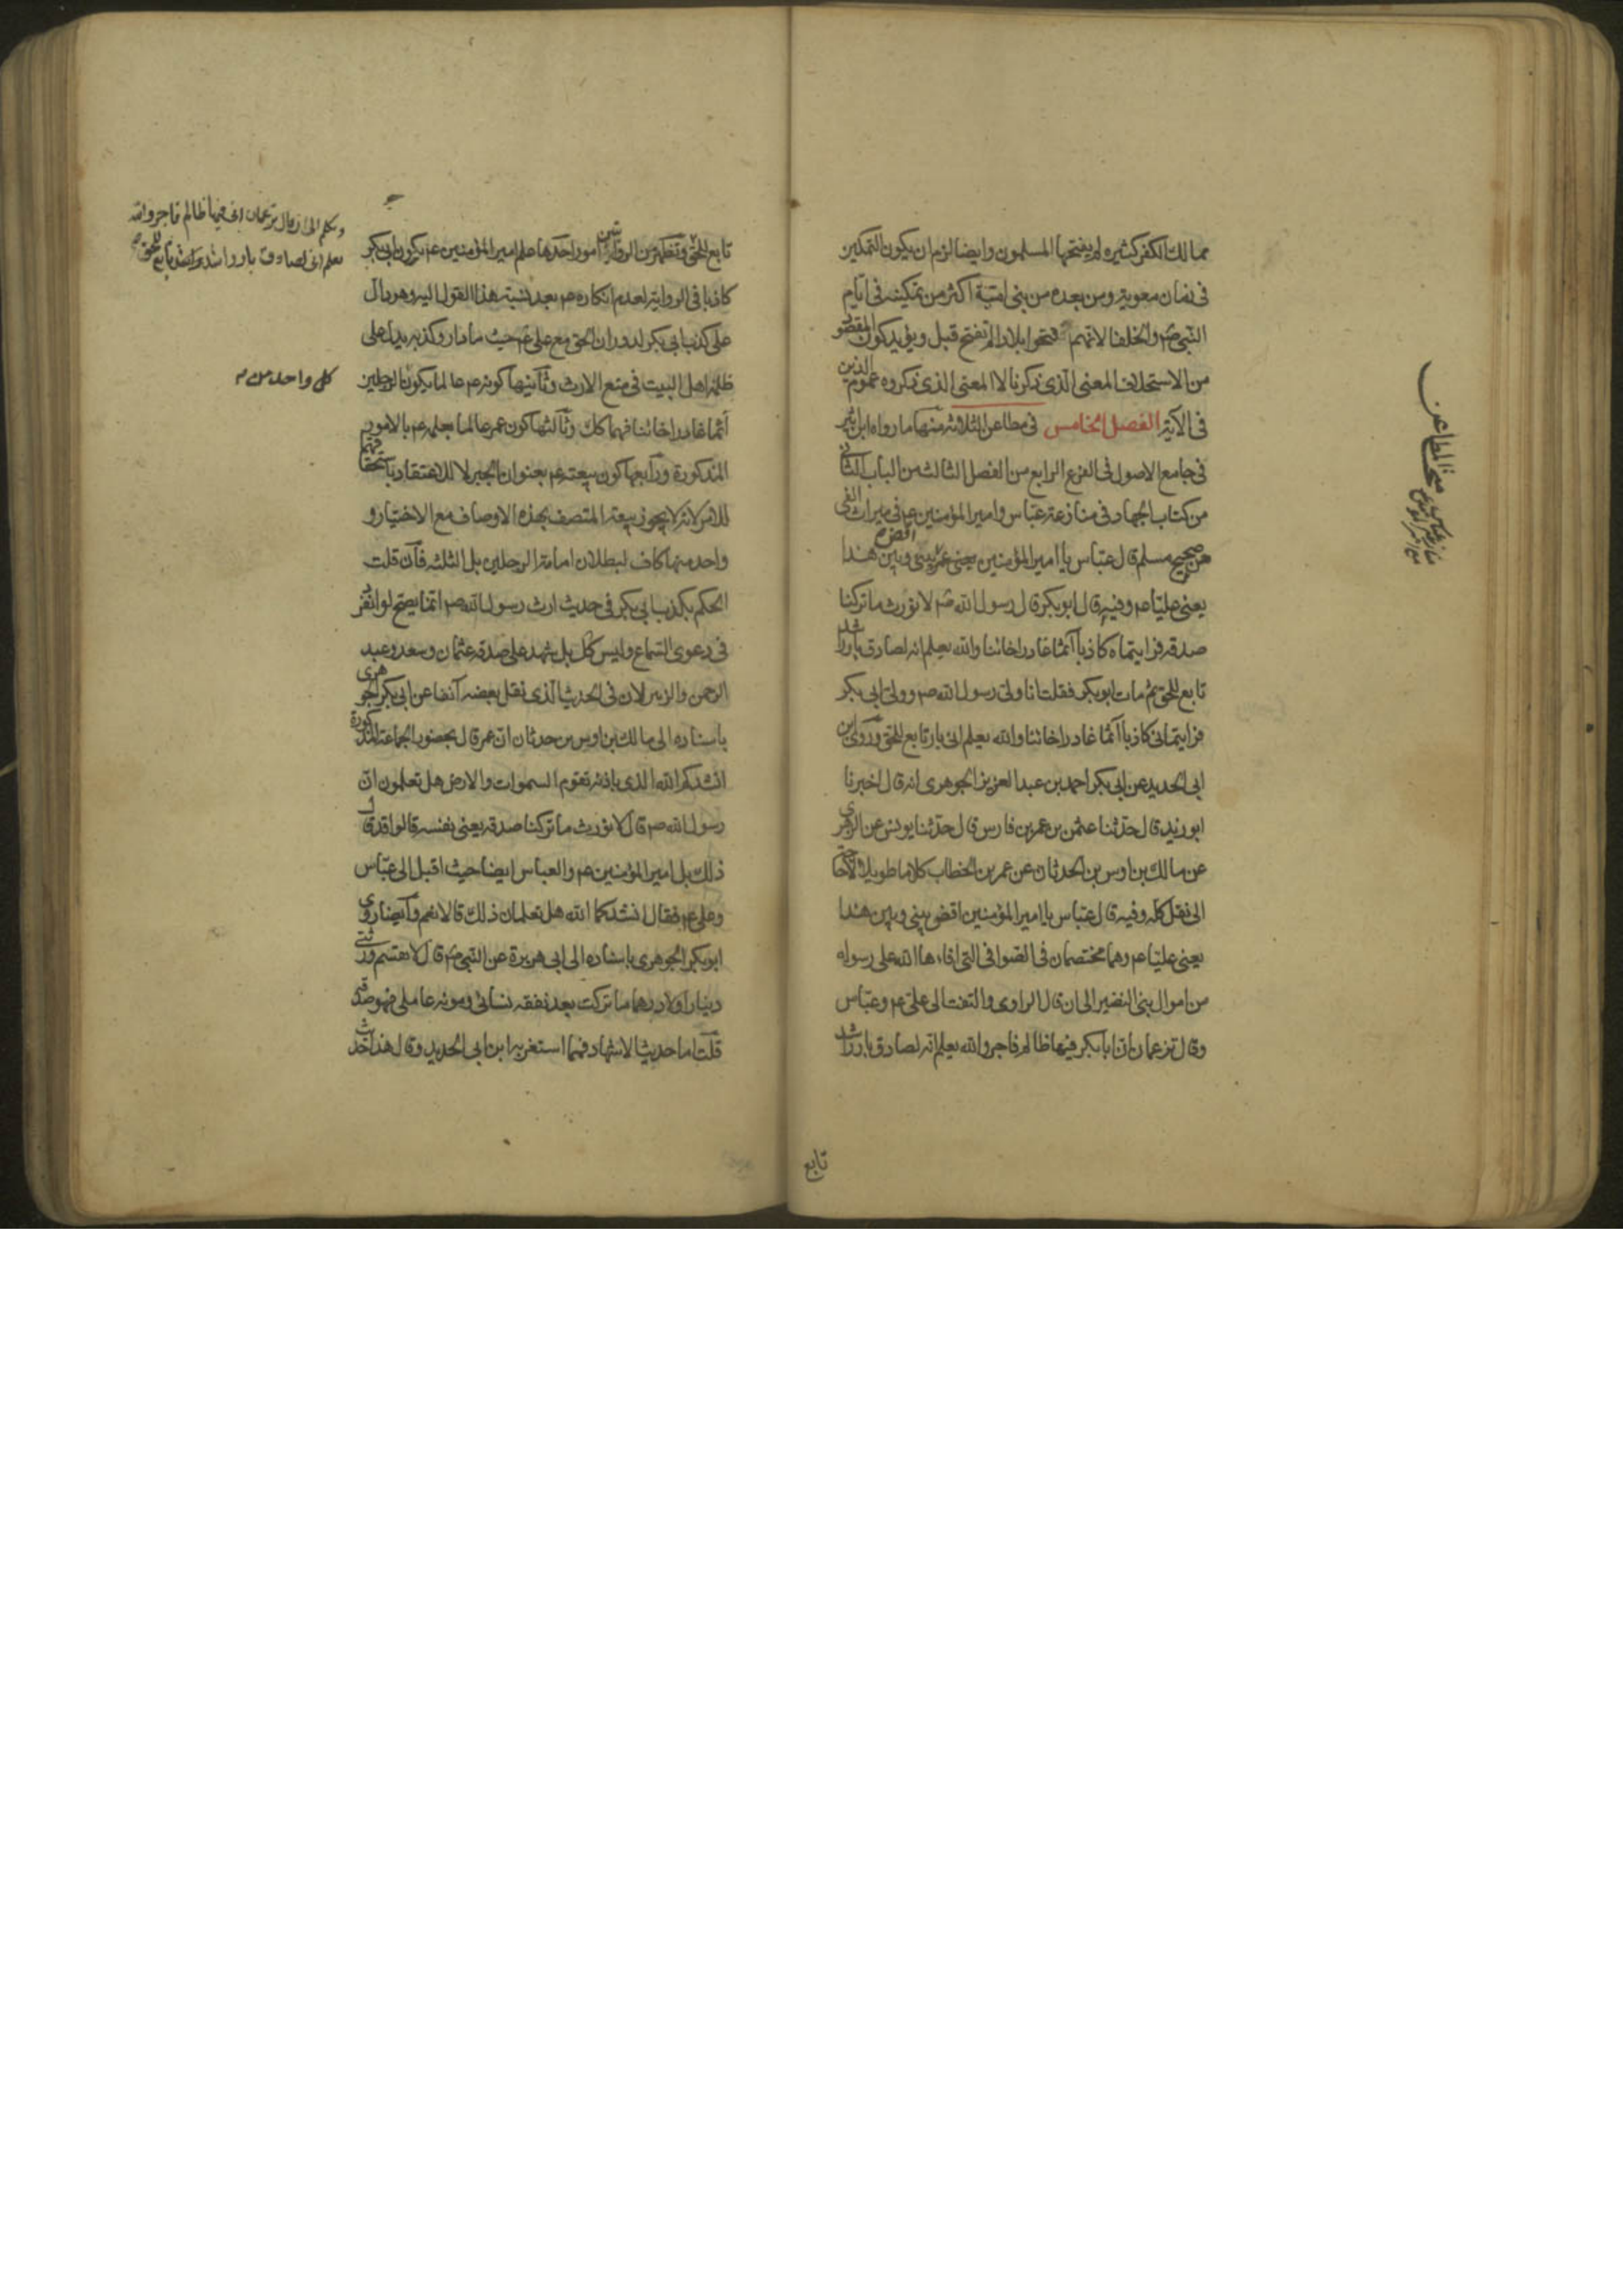 ممالك الكفر كثيره لم يفتحها المسلمون وايضا لزم ان يكون التمكين
فى زمان معوية ومن بعده من بنى امية اكثر من تمكينه فى ايام
النبى ص والخلفا لانهم فتحوا بلادا لم تفتح قبل ويؤيد كون المقصود
من الاستخلاف المعنى الذى ذكرنا لا المعنى الذى ذكروه عموم الذين
فى الآية الفصل الخامس فى مطاعن الثلاثة منها ما رواه ابن اثير
فى جامع الاصول فى الفرع الرابع من الفصل الثالث من الباب الثانى
من كتاب الجهاد فى منازعة عباس وامير المؤمنين ع فى ميراث النبى
من صحيح مسلم قال عباس يا امير المؤمنين يعنى عمر اقض بينى وبين هذا
يعنى عليا ع وفيه قال ابو بكر قال رسول الله ص لا نورث ما تركنا
صدقه فرايتماه كاذبا آثما غادرا خائنا والله يعلم انه لصادق بار راشد
تابع للحق ثم مات ابو بكر فقلت انا ولى رسول الله ص وولى ابى بكر
فرايتمانى كاذبا آثما غادرا خائنا والله يعلم انى بار تابع للحق وروى ابن
ابى الحديد عن ابى بكر احمد بن عبد العزيز الجوهرى انه قال اخبرنا
ابو زيد قال حدثنا عثمن بن عمر بن فارس قال حدثنا يونس عن الزهرى
عن مالك بن اوس بن الحدثان عن عمر بن الخطاب كلاما طويلا لا حاجة
الى نقل كله وفيه قال عباس يا امير المؤمنين اقض بينى وبين هذا
يعنى عليا ع وهما مختصمان فى الصوافى التى افاءها الله على رسوله
من اموال بنى النضير الى ان قال الراوى والتفت الى على ع وعباس
وقال تزعمان ان ابا بكر فيها ظالم فاجر والله يعلم انه لصادق بار راشد
تابع
مبحث المطاعن
منازعة عباس
مع امير المؤمنين ع
تابع للحق وتظهر من الروايتين امور احدها علم امير المؤمنين ع بكون ابى بكر
كاذبا فى الرواية لعدم انكاره ع بعد نسبة هذا القول اليه وهو دال
على كذب ابى بكر لدوران الحق مع على ع حيث ما دار وكذبه يدل على
ظلمه اهل البيت فى منع الارث وثانيها كونه ع عالما بكون الرجلين
آثما غادرا خائنا فهما كك وثالثها كون عمر عالما بعلمه ع بالامور
المذكورة ورابعها كون بيعته ع بعنوان الجبر لا للاعتقاد باستحقاقهما
للامر لانه لا يجوز بيعة المتصف بهذه الاوصاف مع الاختيار و
واحد منها كاف لبطلان امامة الرجلين بل الثلثه فان قلت
الحكم بكذب ابى بكر فى حديث ارث رسول الله ص انما يصح لو انفرد
فى دعوى السماع وليس كك بل شهد على صدقه عثمان وسعد وعبد
الرحمن والزبير لان فى الحديث الذى نقل بعضه آنفا عن ابى بكر الجوهرى
باسناده الى مالك بن اوس بن حدثان ان عمر قال بحضور الجماعة المذكورة
انشدكم الله الذى باذنه تقوم السموات والارض هل تعلمون ان
رسول الله ص قال لا نورث ما تركنا صدقه يعنى نفسه قالوا قد قال
ذلك بل امير المؤمنين ع والعباس ايضا حيث اقبل الى عباس
وعلى ع فقال انشدكما الله هل تعلمان ذلك قالا نعم وايضا روى
ابو بكر الجوهرى باسناده الى ابى هريرة عن النبى ص قال لا تقتسم ورثتى
دينارا ولا درهما ما تركت بعد نفقه نسائى ومونه عاملى فهو صدقه
قلت اما حديث الاستشهاد فهما استغربه ابن ابى الحديد وقال هذا حديث
ظالم فاجر والله
يعلم انى لصادق بار راشد تابع للحق
كل واحد من